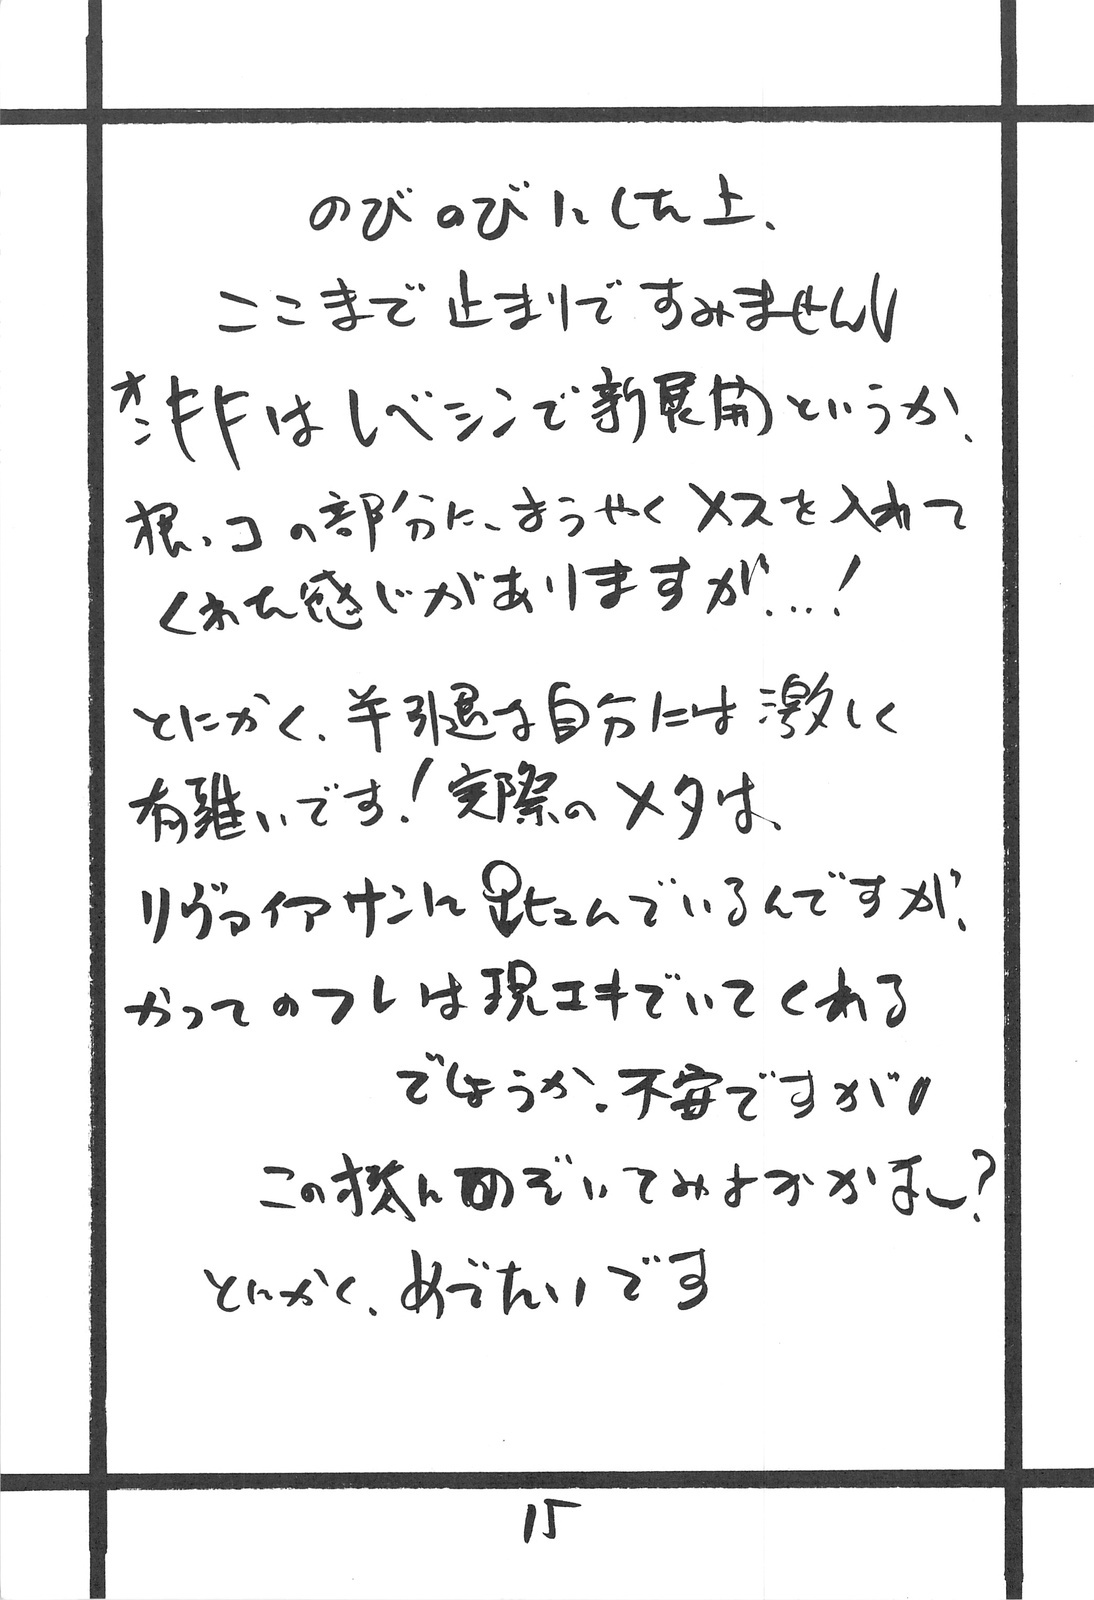 のびのびにした上、
ここまで止まりですみません
はレベシンで新展開というか、
根っコの部分に、ようやくメスを入れて
くれた感じがありますが…!
とにかく、半引退は自分には激しく
有難いです!実際のメタは、
リヴァイアサンにんでいるんですが、
かってのフレは現エキでいてくれる
でしょうか、不安ですが
このにのぞいてみようかなー?
とにかく、めでたいです
15